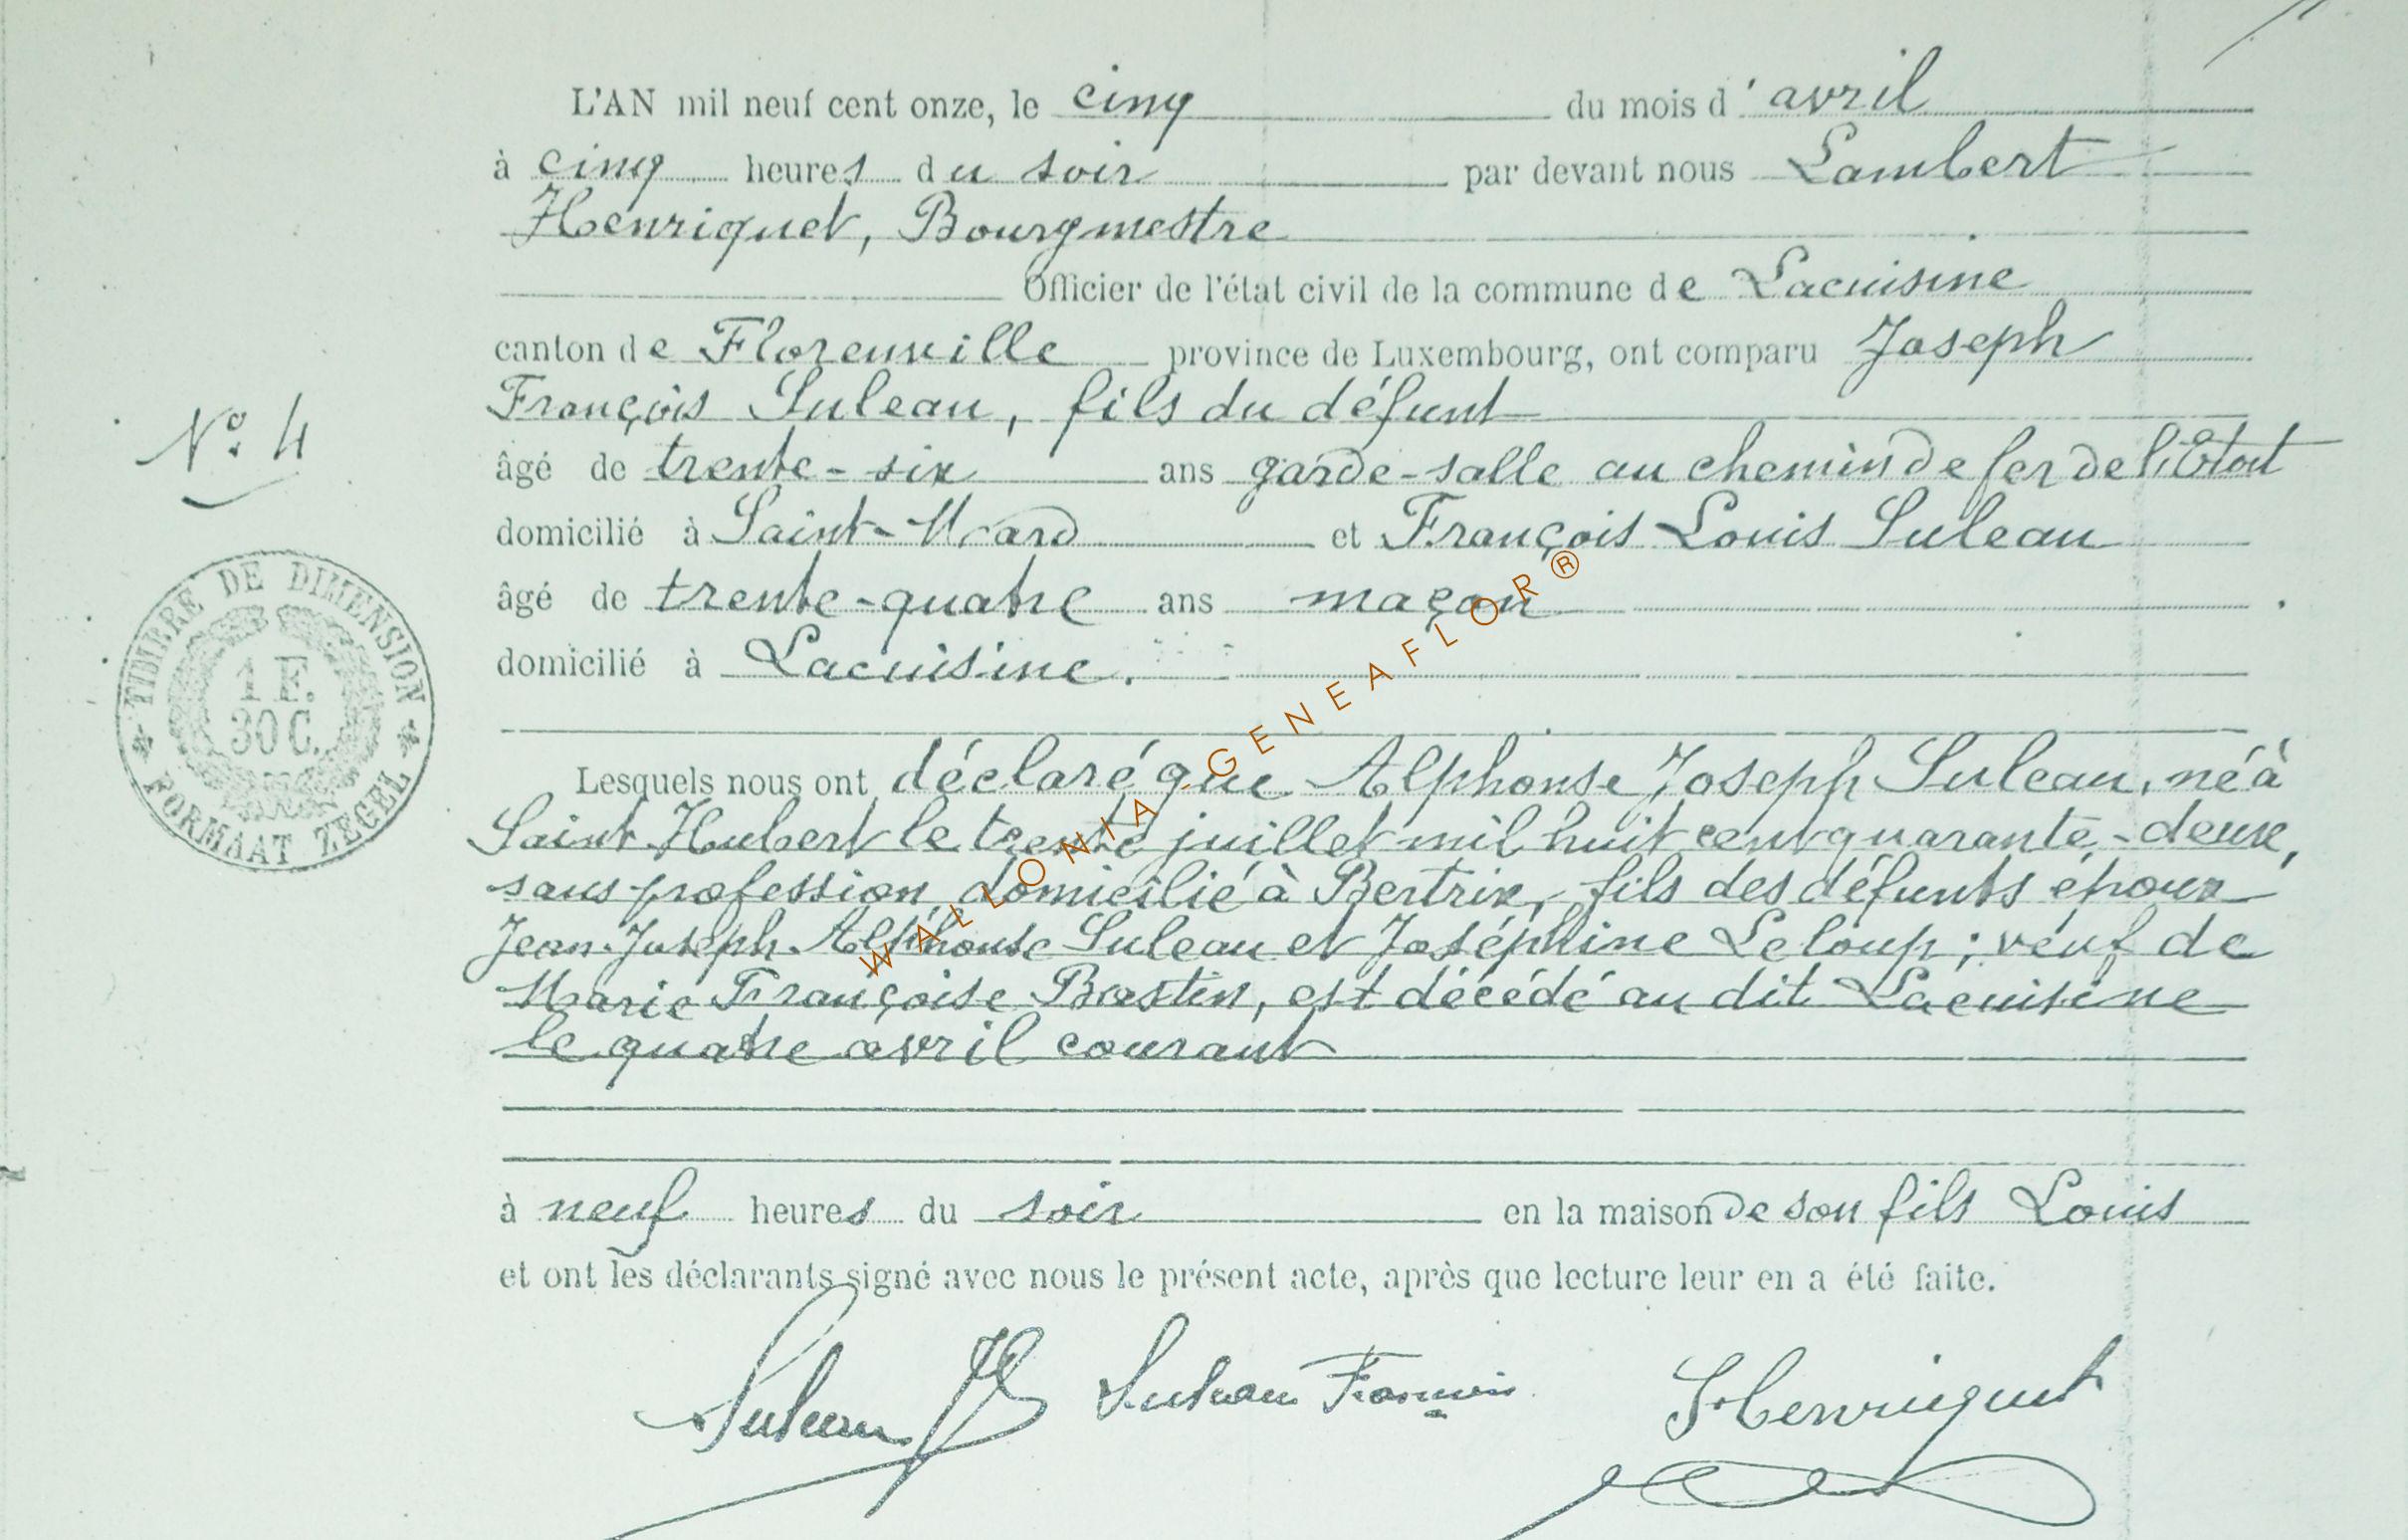 L'AN mil neuf cent onze, le cinq du mois d'avril
à cinq heures du soir par devant nous Lambert
Henriquet, Bourgmestre
Officier de l'état civil de la commune de Lacuisine
canton de Florenville province de Luxembourg, ont comparu Joseph
François Suleau, fils du défunt
âgé de trente-six ans garde-salle au chemin de fer de l'Etat
domicilié à Saint-Mard et François Louis Suleau
âgé de trente-quatre ans maçon
domicilié à Lacuisine.
N° 4
TIMBRE DE DIMENSION
1 F.
30 C.
FORMAAT ZEGEL
Lesquels nous ont déclaré que Alphonse Joseph Suleau, né à
Saint-Hubert le trente juillet mil huit cent quarante-deux,
sans profession, domicilié à Bertrix, fils des défunts époux
Jean-Joseph-Alphonse Suleau et Joséphine Leloup; veuf de
Marie Françoise Bastin, est décédé au dit Lacuisine
le quatre avril courant
à neuf heures du soir en la maison de son fils Louis
et ont les déclarants signé avec nous le présent acte, après que lecture leur en a été faite.
Suleau Suleau François Henriquet
WALLONIA-GENEAFLOR®